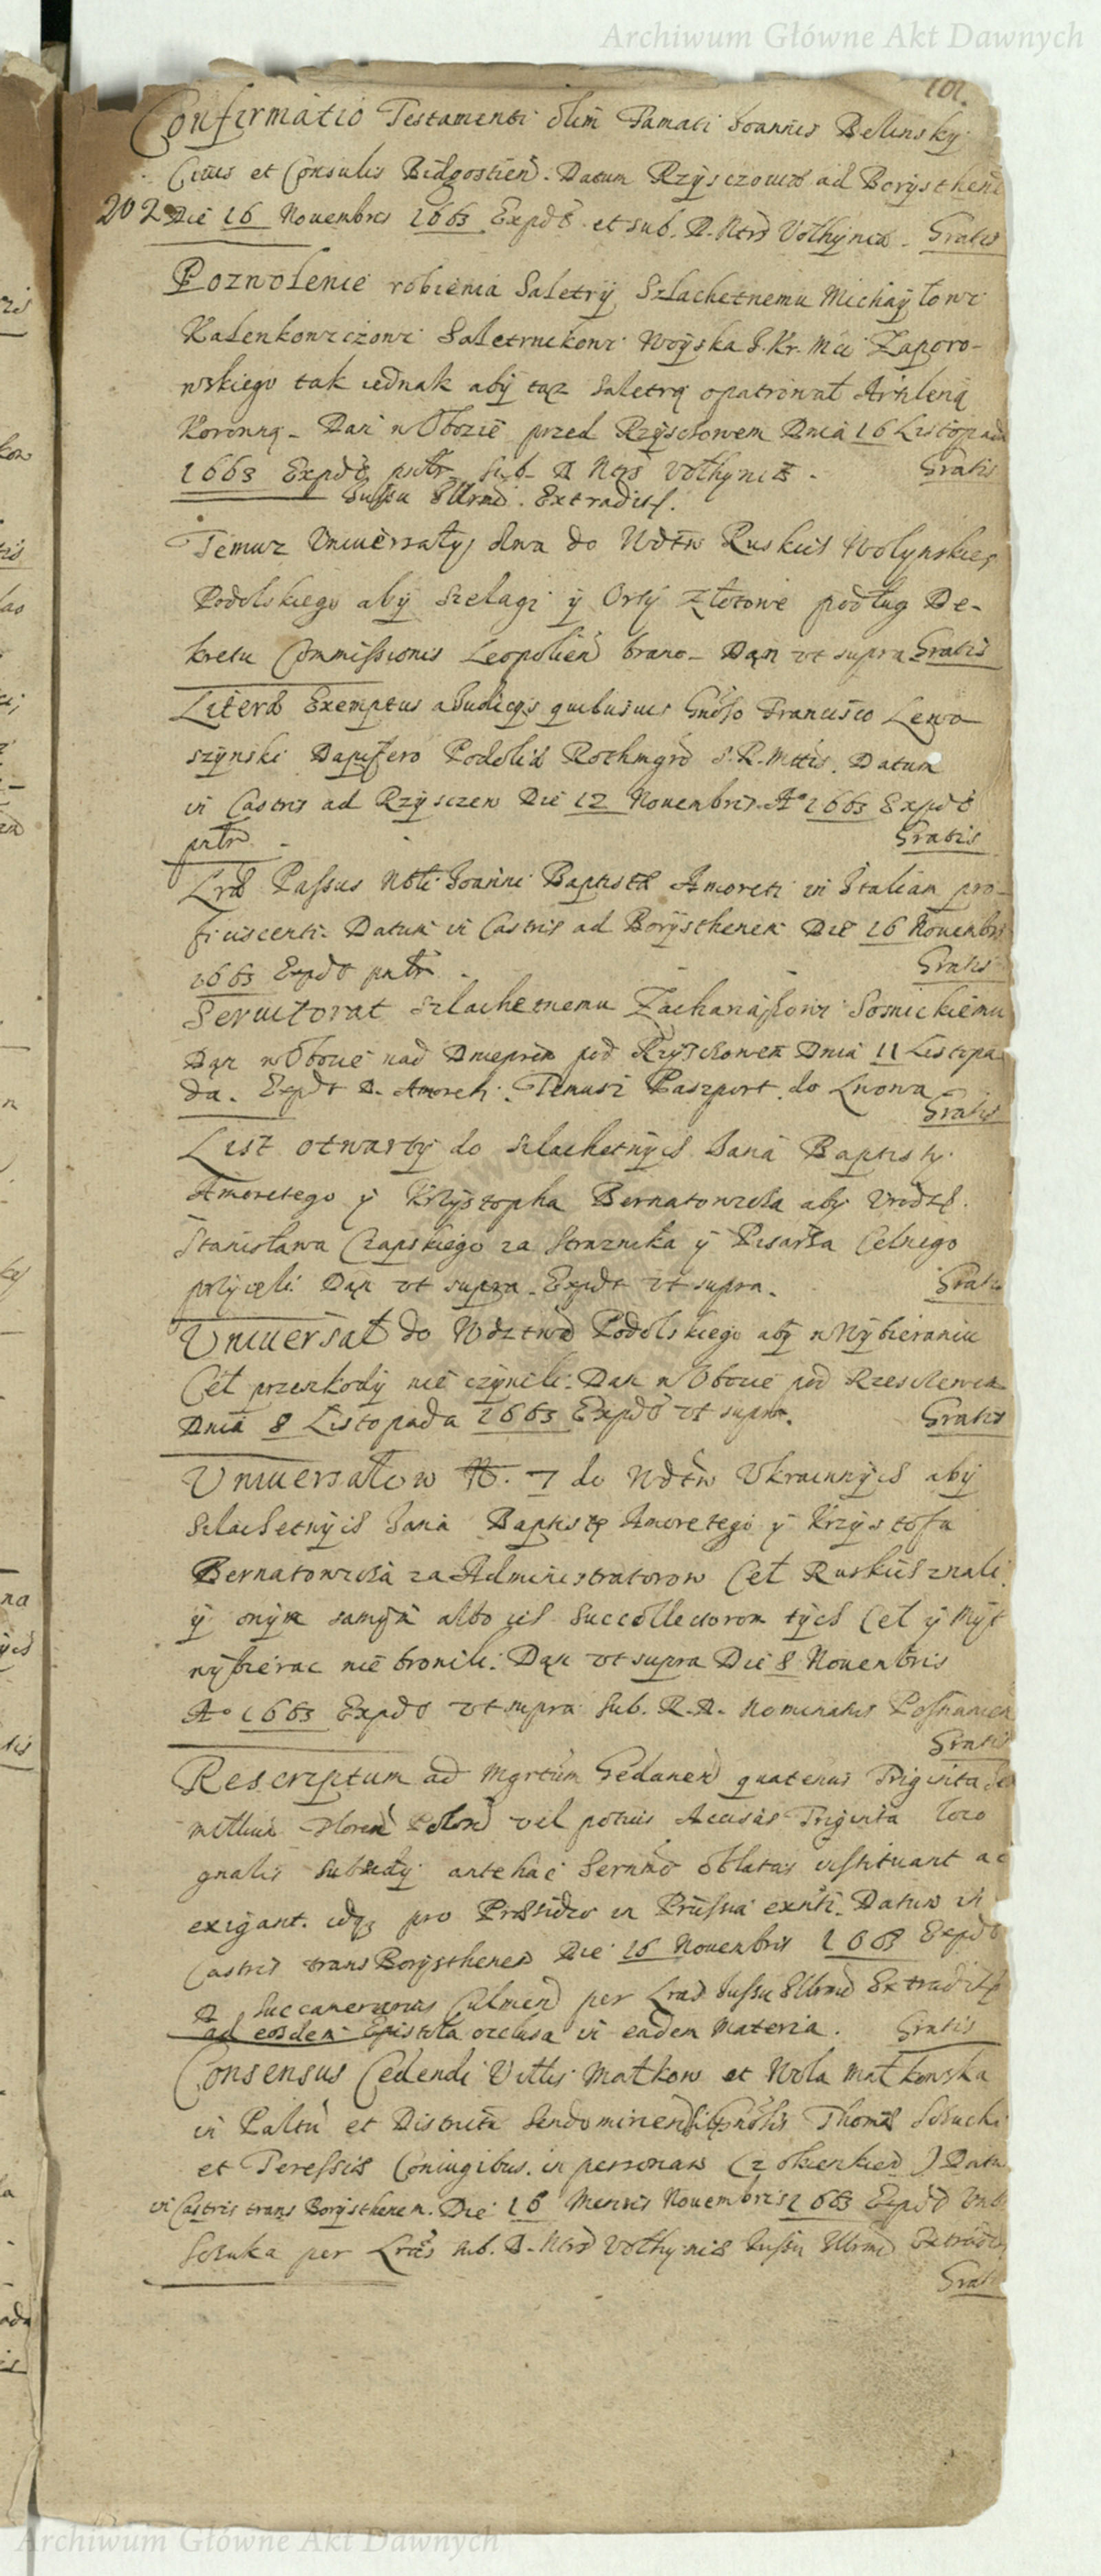 Archiwum Główne Akt Dawnych
101.
Confirmatio Testamenti olim Famati Joannis Belinsky
Civis et Consulis Bidgostien. Datum Rzysczowiæ ad Borysthene
202 Die 16 Novembris 1663 Expdt et sub. R. Ntrd Volhyniæ. Gratis
Pozwolenie robienia Saletry Szlachetnemu Michayłowi
Kalenkowiczowi Saletrnikowi Woyska J. Kr. Mci Zaporo-
wskiego tak iednak aby tąz Saletrą opatrował Armeną
Koronną. Dan w Obozie przed Rzysczowem Dnia 16 Listopada
1663 Expdt putr sub. R Ntrd Volhyniæ. Gratis
Jussu Illrmd. Extradit.
Temuz Uniwersały dwa do Wdztw Ruskich Wolynskieg
Podolskiego aby Szelagi y Orty Złotowe podług De-
kretu Commissionis Leopolien brano. Dan ut supra Gratis
Literæ Exemptus a Judicijs quibusvis Gnoso Francisco Lewo
szynski Dapifero Podoliæ Rothmgrd S. R. Mttis. Datum
in Castris ad Rzysczew Die 12 Novembris Ao 1663 Expdt
putr. Gratis
Lræ Passus Nbli Joanni Baptistæ Amoreti in Italiam pro-
ficiscenti. Datum in Castris ad Borysthenem Die 16 Novembris
1663 Expdt putr. Gratis
Servitorat szlachetnemu Zachariaszowi Somickiemu
Dan w Obozie nad Dnieprem pod Rzysczowem Dnia 11 Listopa
da. Expdt R. Amoreti. Temusz Paszport do Lwowa
Gratis
List otwarty do szlachetnych Jana Baptisty
Amoretego y Krzysztopha Bernatowicza aby Urodz.
Stanisława Czapskiego za Straznika y Pisarza Celnego
przyieli. Dan ut supra. Expdt ut supra. Gratis
Uniwersał do Wdztwa Podolskiego aby w Wybieraniu
Ceł przeszkody nie czynili. Dan w Obozie pod Rzesczewem
Dnia 8 Listopada 1663 Expdt ut supra. Gratis
Uniwersałow N. 7 do Wdztw Ukrainnych aby
szlachetnych Jana Baptistę Amoretego y Krzysztofa
Bernatowicza za Administratorow Ceł Ruskich znali
y onym samym albo ich Succollectorom tych Ceł y Myt
wybierac nie bronili. Dan ut supra Die 8 Novembris
Ao 1663 Expdt ut supra sub. R. R. Nominatus Posnanien
Gratis
Rescriptum ad Mgrtum Gedanen quatenus Triginta
millium Floren Polon vel potius Accisas Triginta loco
gnalis subsidy antehac Sermo oblatas instituant ac
exigant. idq pro Præsidio in Prussia exnti. Datum in
Castris trans Borysthenen Die 16 Novembris 1663 Expdt
R. Succamerarius Culmen per Lras Jussu Illrmd Extradit
ad eosdem Epistola occlusa in eadem Materia. Gratis
Consensus Cedendi Villis Małkow et Wola Małkowska
in Palttu et Districtu Sendomirien Gnosis Thomæ Sobucki
et Teressiæ Coniugibus. in personam (z okienkiem) Datu
in Castris trans Borysthenem. Die 16 Mensis Novembris 1663 Expdt
per Lras sub. R. Ntrd Volhyniæ Jussu Illrmd Extradit
Gratis
Archiwum Główne Akt Dawnych